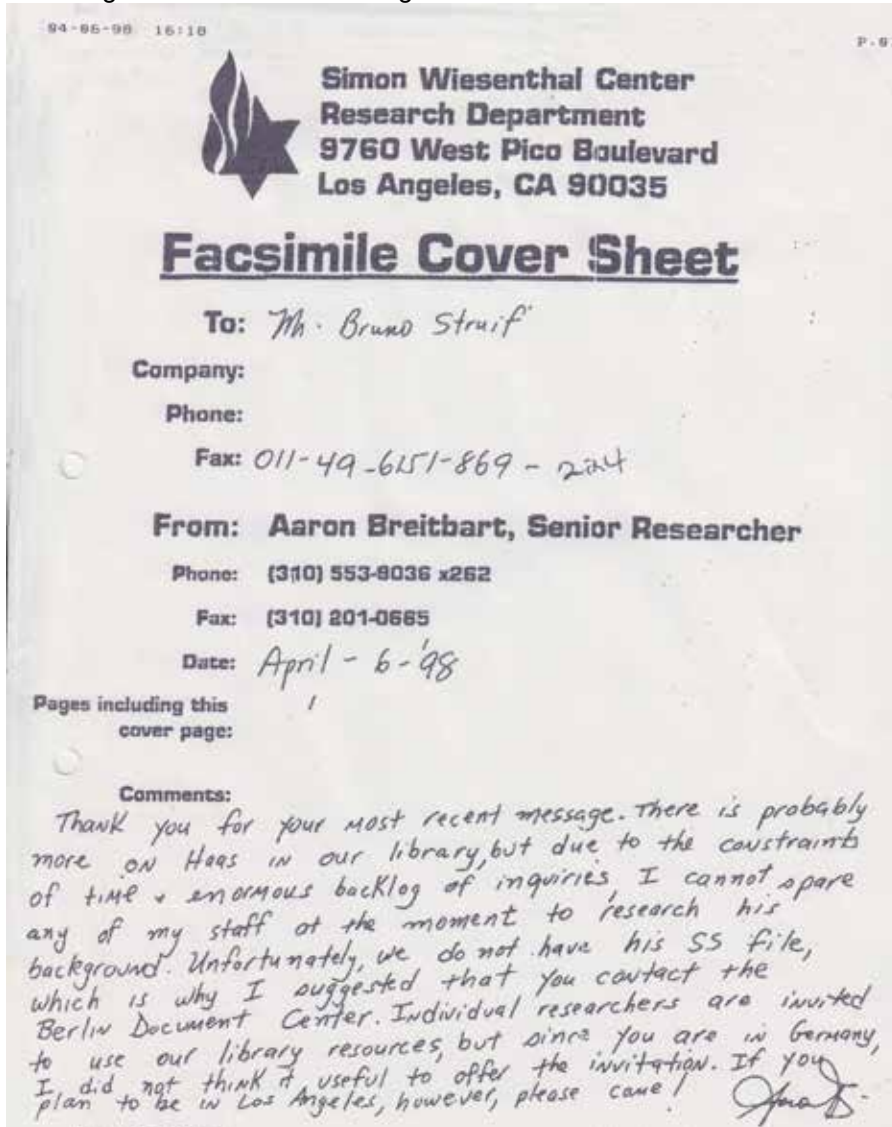 04-06-98 16:18
P.0
Simon Wiesenthal Center
Research Department
9760 West Pico Boulevard
Los Angeles, CA 90035
Facsimile Cover Sheet
To: Mr. Bruno Struif
Company:
Phone:
Fax: 011-49-6151-869-
From: Aaron Breitbart, Senior Researcher
Phone: (310) 553-9036 x262
Fax: (310) 201-0665
Date: April - 6 - '98
Pages including this 1
cover page:
Comments:
Thank you for your most recent message. There is probably
more on Haas in our library, but due to the constraints
of time & enormous backlog of inquiries, I cannot spare
any of my staff at the moment to research his
background. Unfortunately, we do not have his SS file,
which is why I suggested that you contact the
Berlin Document Center. Individual researchers are invited
to use our library resources, but since you are in Germany,
I did not think it useful to offer the invitation. If you
plan to be in Los Angeles, however, please come!